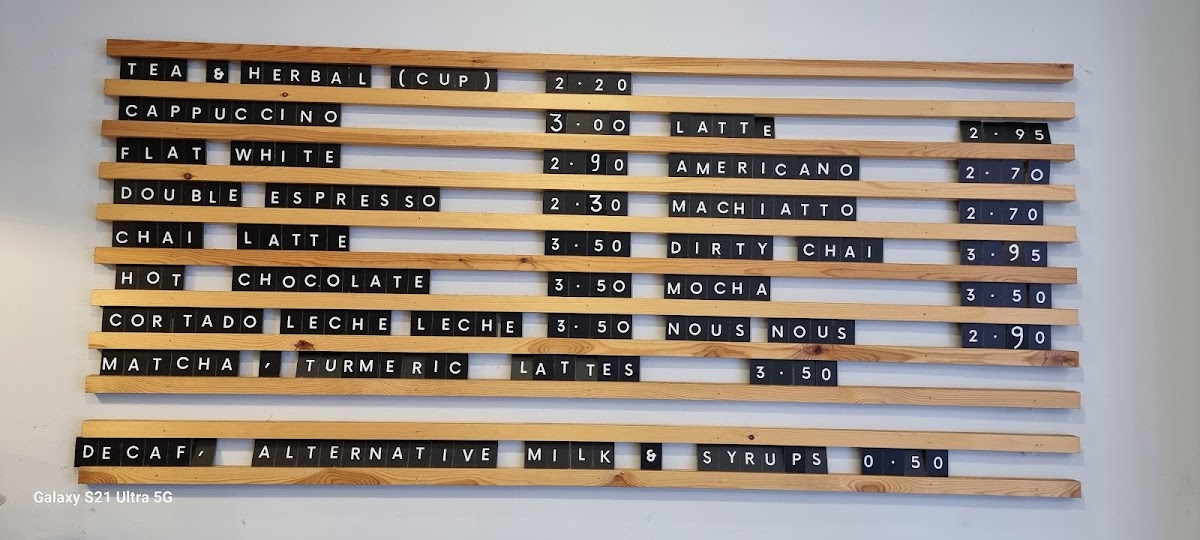 TEA & HERBAL (CUP) 2.20
CAPPUCCINO 3.00 LATTE 2.95
FLAT WHITE 2.90 AMERICANO 2.70
DOUBLE ESPRESSO 2.30 MACHIATTO 2.70
CHAI LATTE 3.50 DIRTY CHAI 3.95
HOT CHOCOLATE 3.50 MOCHA 3.50
CORTADO LECHE LECHE 3.50 NOUS NOUS 2.90
MATCHA, TURMERIC LATTES 3.50
DECAF, ALTERNATIVE MILK & SYRUPS 0.50
Galaxy S21 Ultra 5G